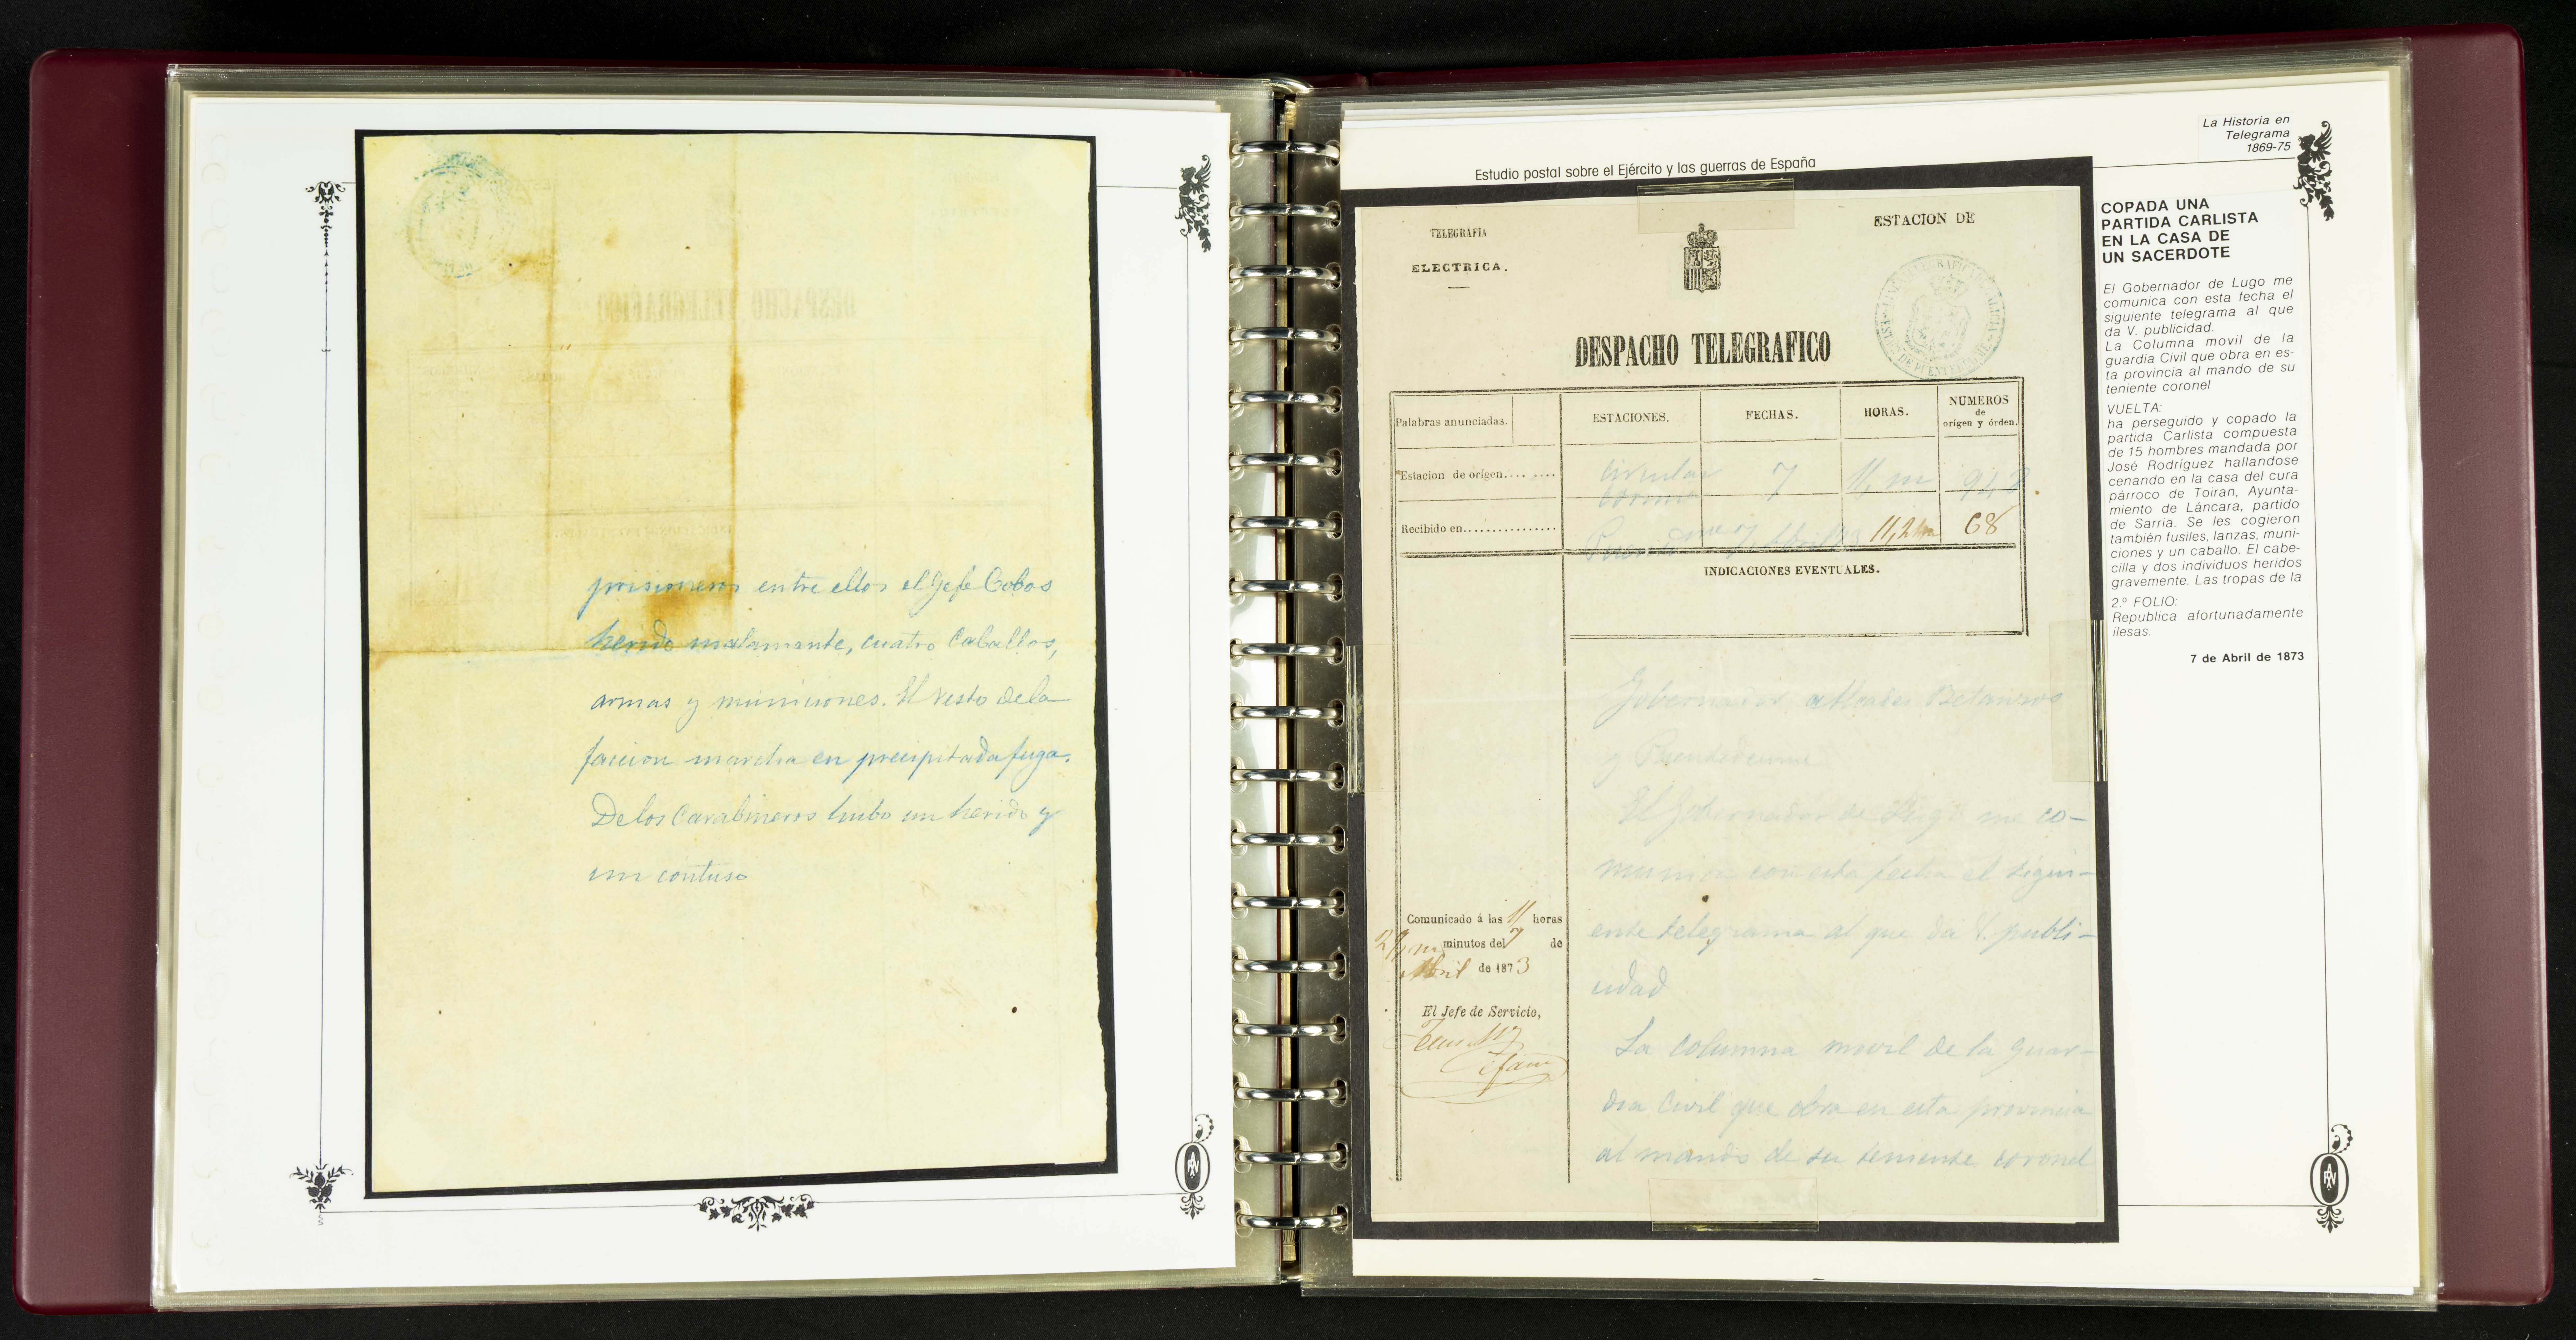 prisioneros entre ellos el Jefe Cobos
herido malamante, cuatro Caballos,
armas y municiones. El resto dela
faccion marcha en precipitada fuga.
Delos Carabineros hubo un herido y
un contuso
La Historia en
Telegrama
1869-75
Estudio postal sobre el Ejército y las guerras de España
TELEGRAFIA
ELECTRICA.
ESTACION DE
DESPACHO TELEGRAFICO
Palabras anunciadas.
ESTACIONES.
FECHAS.
HORAS.
NUMEROS
de
origen y órden.
Estacion de orígen.... ....
Circular
7
11, m
948
Recibido en................
11,2 m
68
INDICACIONES EVENTUALES.
Gobernador a Alcaldes Betanzos
y Puentedeume
El Gobernador de Lugo me co-
munica con esta fecha el sigui-
ente telegrama al que da V. publi-
cidad
La columna movil de la guar-
dia Civil que obra en esta provincia
al mando de su teniente coronel
Comunicado á las 11 horas
minutos del 7 de
Abril de 1873
El Jefe de Servicio,
COPADA UNA
PARTIDA CARLISTA
EN LA CASA DE
UN SACERDOTE
El Gobernador de Lugo me
comunica con esta fecha el
siguiente telegrama al que
da V. publicidad.
La Columna movil de la
guardia Civil que obra en es-
ta provincia al mando de su
teniente coronel
VUELTA:
ha perseguido y copado la
partida Carlista compuesta
de 15 hombres mandada por
José Rodríguez hallandose
cenando en la casa del cura
párroco de Toiran, Ayunta-
miento de Láncara, partido
de Sarria. Se les cogieron
también fusiles, lanzas, muni-
ciones y un caballo. El cabe-
cilla y dos individuos heridos
gravemente. Las tropas de la
2.º FOLIO:
Republica afortunadamente
ilesas.
7 de Abril de 1873